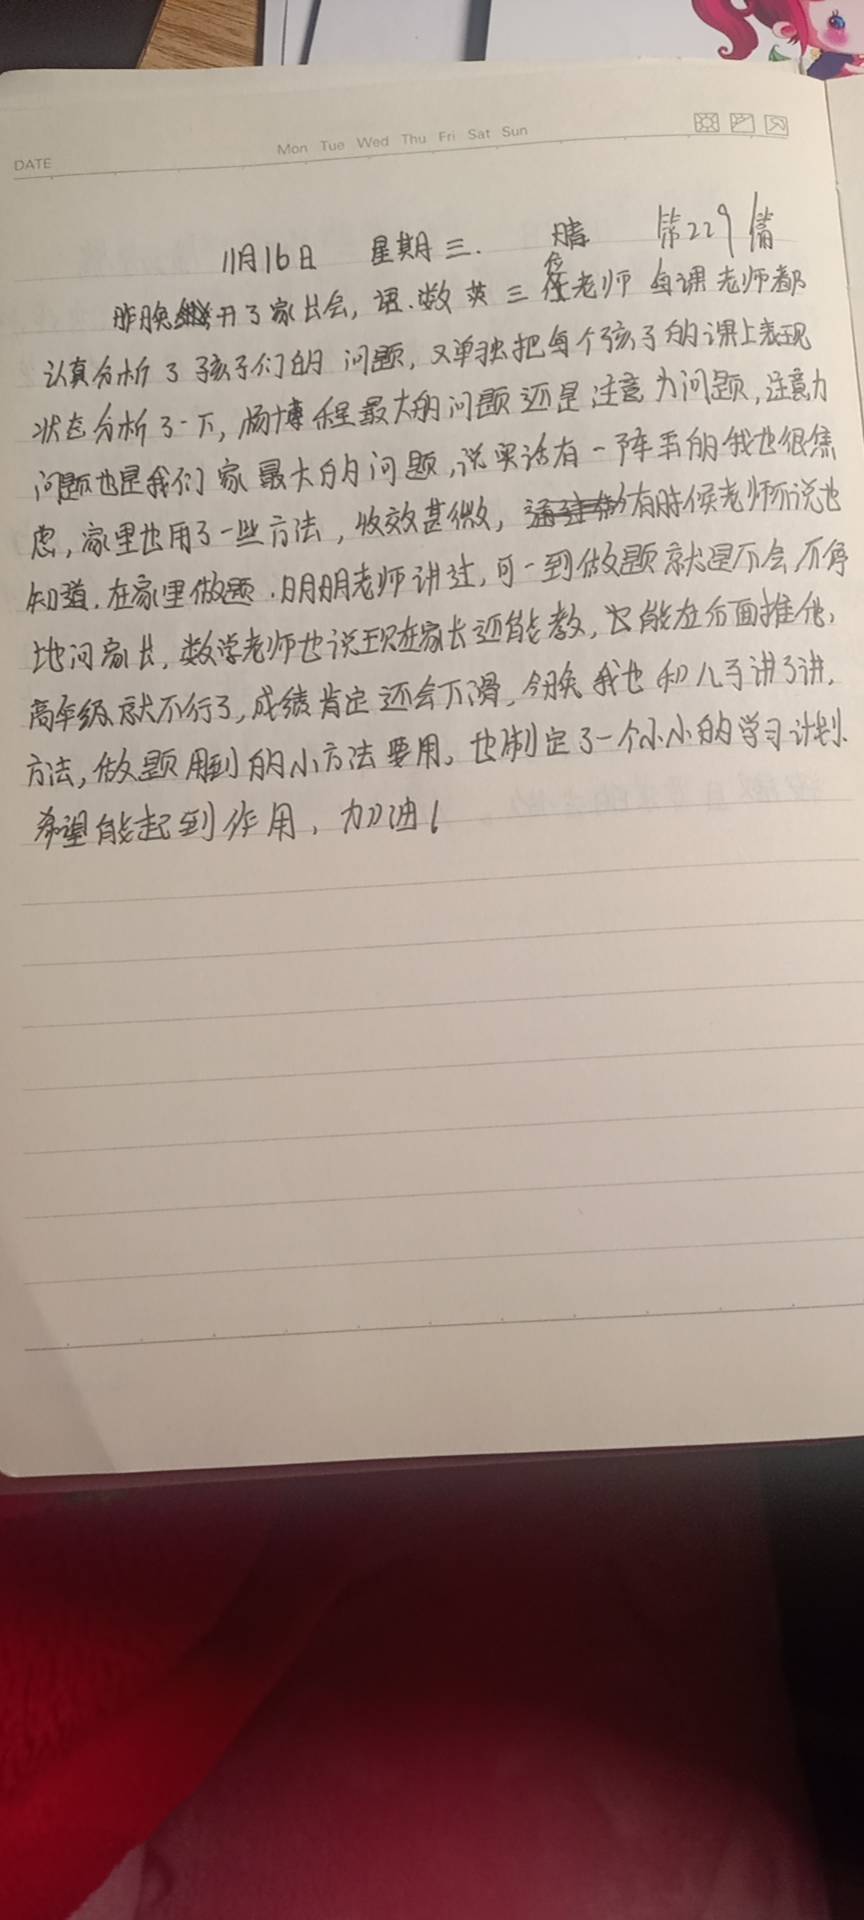 DATE
Mon Tue Wed Thu Fri Sat Sun
11月16日 星期三. 晴 第229篇
昨晚开了家长会，语.数英三位老师每课老师都
认真分析了孩子们的问题，又单独把每个孩子的课上表现
状态分析了一下，杨博程最大的问题还是注意力问题，注意力
问题也是我们家最大的问题，说实话有一阵子的我也很焦
虑，家里也用了一些方法，收效甚微，有时候老师所说也
知道.在家里做题.明明老师讲过，可一到做题就是不会不停
地问家长，数学老师也说现在家长还能教，也能在后面推他，
高年级就不行了，成绩肯定还会下滑，今晚我也和儿子讲了讲，
方法，做题用到的小方法要用。也制定了一个小小的学习计划.
希望能起到作用，加油！